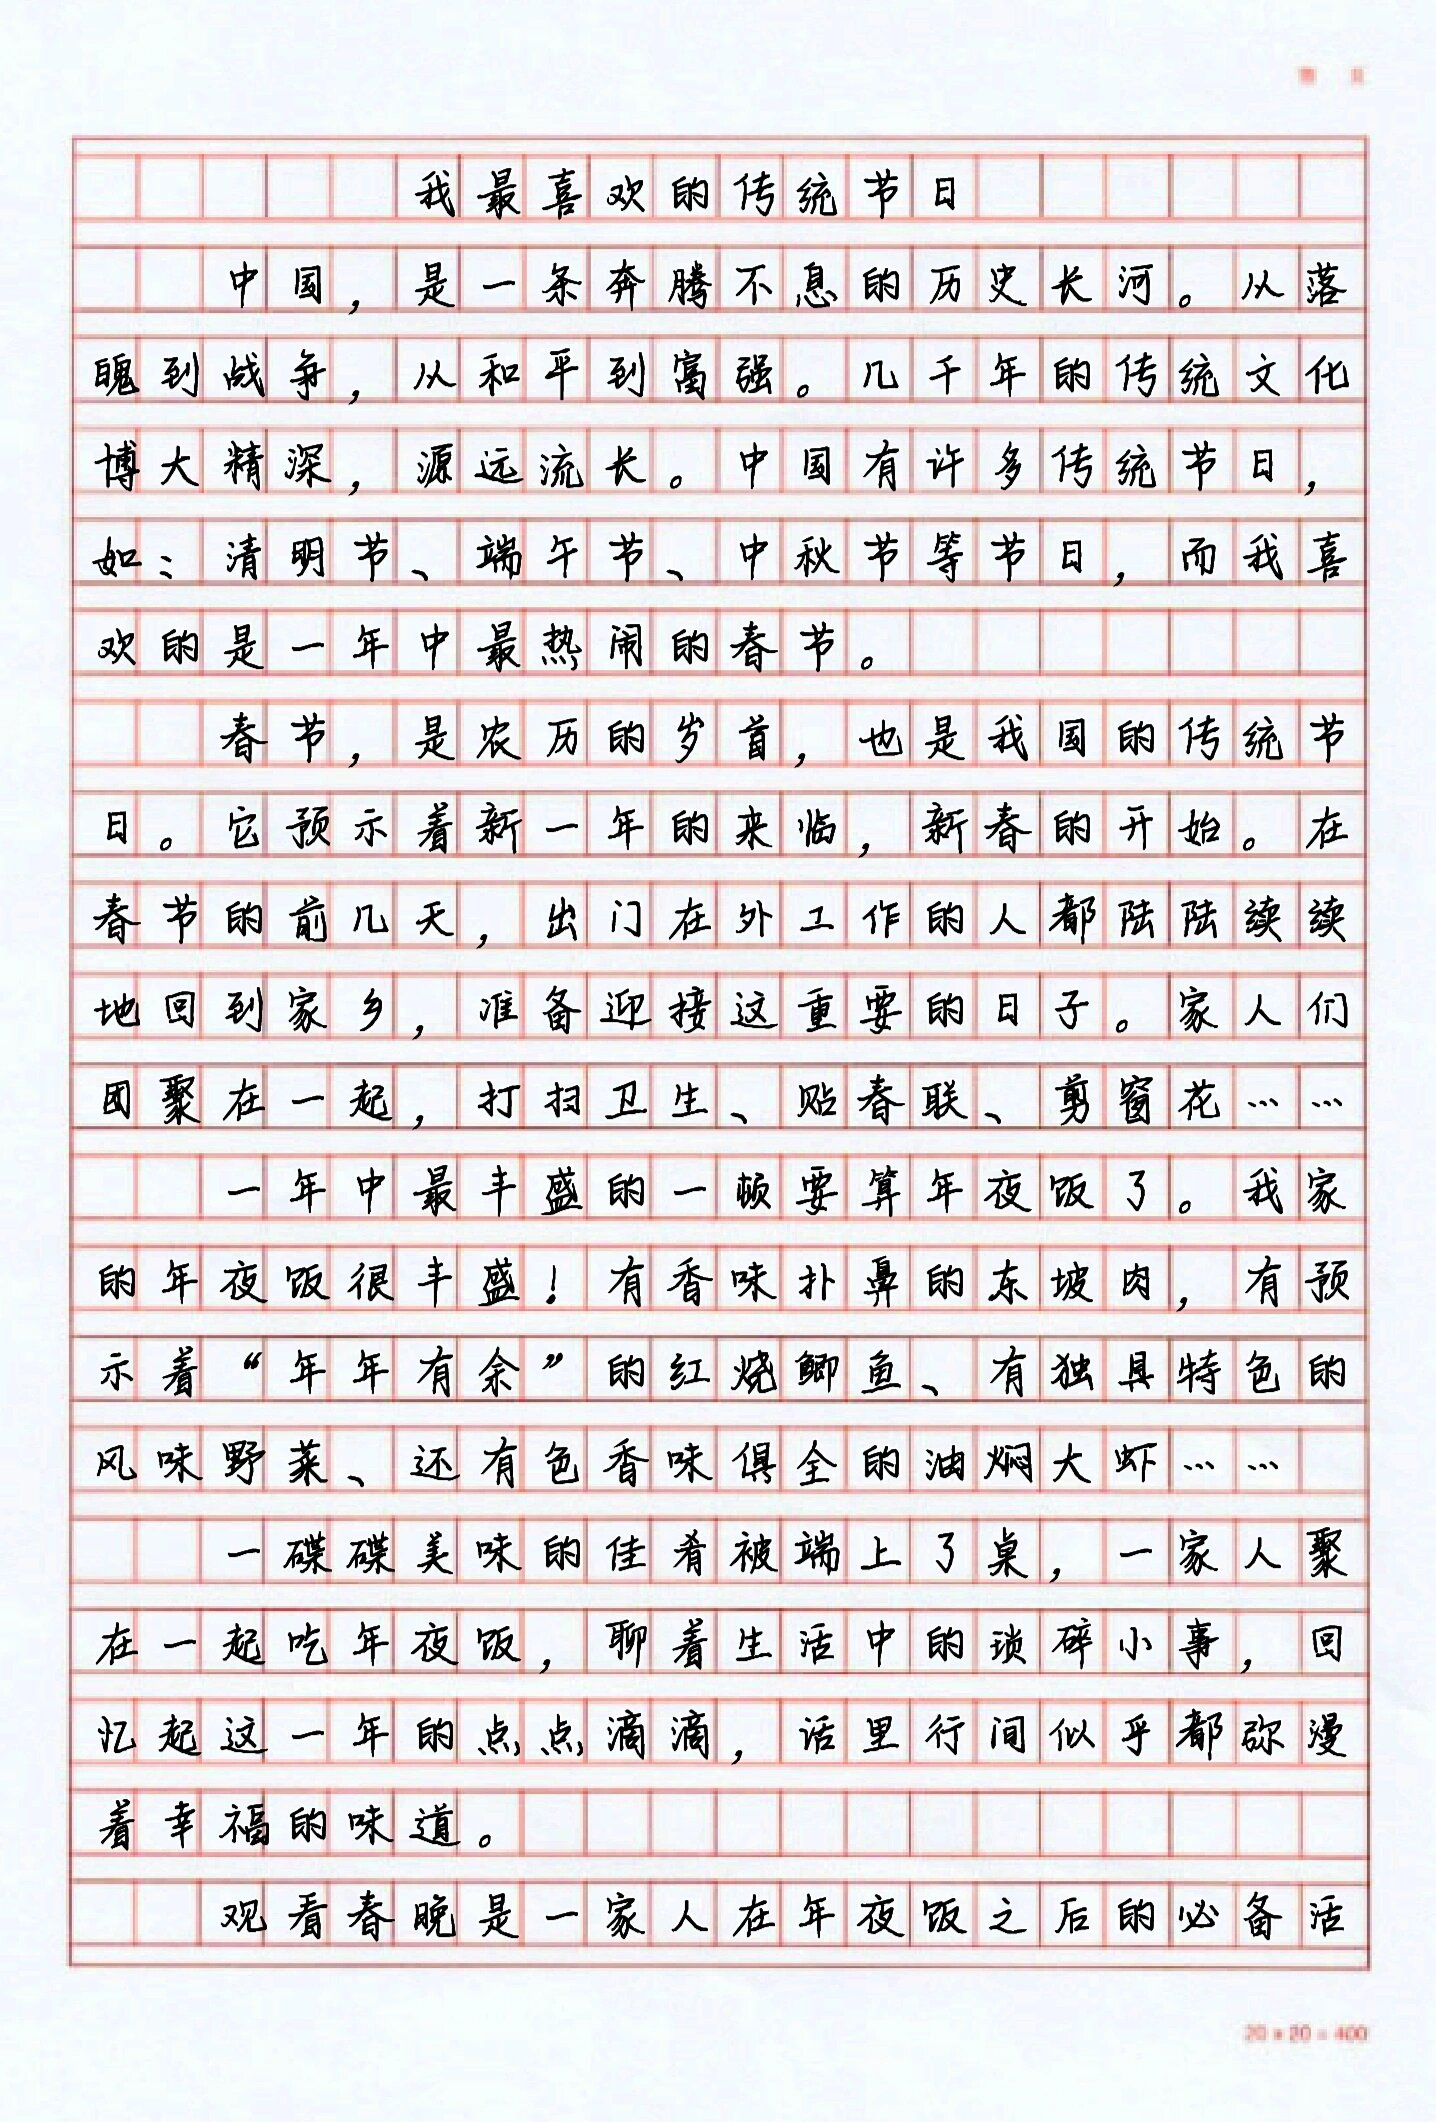 我最喜欢的传统节日
中国，是一条奔腾不息的历史长河。从落
魄到战争，从和平到富强。几千年的传统文化
博大精深，源远流长。中国有许多传统节日，
如：清明节、端午节、中秋节等节日，而我喜
欢的是一年中最热闹的春节。
春节，是农历的岁首，也是我国的传统节
日。它预示着新一年的来临，新春的开始。在
春节的前几天，出门在外工作的人都陆陆续续
地回到家乡，准备迎接这重要的日子。家人们
团聚在一起，打扫卫生、贴春联、剪窗花……
一年中最丰盛的一顿要算年夜饭了。我家
的年夜饭很丰盛！有香味扑鼻的东坡肉，有预
示着“年年有余”的红烧鲫鱼、有独具特色的
风味野菜、还有色香味俱全的油焖大虾……
一碟碟美味的佳肴被端上了桌，一家人聚
在一起吃年夜饭，聊着生活中的琐碎小事，回
忆起这一年的点点滴滴，话里行间似乎都弥漫
着幸福的味道。
观看春晚是一家人在年夜饭之后的必备活
20×20=400